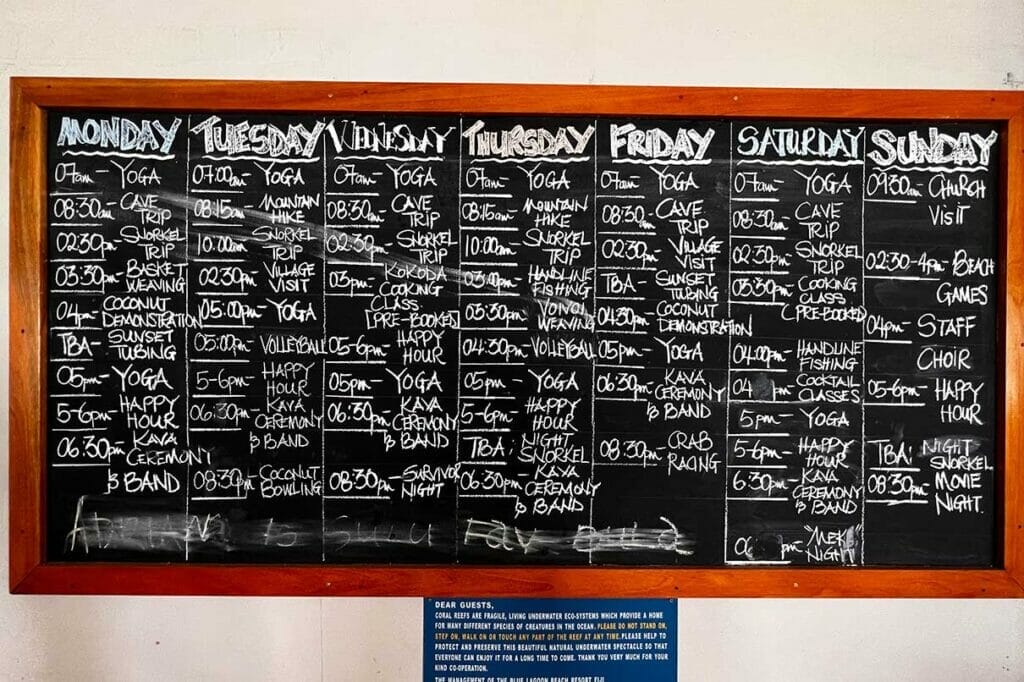 MONDAY
07am - YOGA
08:30am - CAVE
TRIP
02:30pm - SNORKEL
TRIP
03:30pm - BASKET
WEAVING
04pm - COCONUT
DEMONSTRATION
TBA - SUNSET
TUBING
05pm - YOGA
5-6pm - HAPPY
HOUR
06:30pm - KAVA
CEREMONY
& BAND
TUESDAY
07:00am - YOGA
08:15am - MOUNTAIN
HIKE
10:00am - SNORKEL
TRIP
02:30pm - VILLAGE
VISIT
05:00pm - YOGA
05:00pm - VOLLEYBALL
5-6pm - HAPPY
HOUR
06:30pm - KAVA
CEREMONY
& BAND
08:30pm - COCONUT
BOWLING
WEDNESDAY
07am - YOGA
08:30am - CAVE
TRIP
02:30pm - SNORKEL
TRIP
03pm - KOKODA
COOKING
CLASS
[PRE-BOOKED]
05-6pm - HAPPY
HOUR
05pm - YOGA
06:30pm - KAVA
CEREMONY
& BAND
08:30pm - SURVIVOR
NIGHT
THURSDAY
07am - YOGA
08:15am - MOUNTAIN
HIKE
10:00am - SNORKEL
TRIP
03:00pm - HANDLINE
FISHING
03:30pm - VOIVOI
WEAVING
04:30pm - VOLLEYBALL
05pm - YOGA
5-6pm - HAPPY
HOUR
TBA: NIGHT
SNORKEL
06:30pm - KAVA
CEREMONY
& BAND
FRIDAY
07am - YOGA
08:30 - CAVE
TRIP
02:30 - VILLAGE
VISIT
TBA - SUNSET
TUBING
04:30pm - COCONUT
DEMONSTRATION
05pm - YOGA
06:30pm - KAVA
CEREMONY
& BAND
08:30pm - CRAB
RACING
SATURDAY
07am - YOGA
08:30am - CAVE
TRIP
02:30pm - SNORKEL
TRIP
03:30pm - COOKING
CLASS
[PRE-BOOKED]
04:00pm - HANDLINE
FISHING
04 pm - COCKTAIL
CLASSES
5pm - YOGA
5-6pm - HAPPY
HOUR
6:30pm - KAVA
CEREMONY
& BAND
pm - "MEKE
NIGHT
SUNDAY
09:30am - CHURCH
VISIT
02:30 - 4pm - BEACH
GAMES
04pm - STAFF
CHOIR
05-6pm - HAPPY
HOUR
TBA: NIGHT
SNORKEL
08:30pm - MOVIE
NIGHT.
DEAR GUESTS,
CORAL REEFS ARE FRAGILE, LIVING UNDERWATER ECO-SYSTEMS WHICH PROVIDE A HOME
FOR MANY DIFFERENT SPECIES OF CREATURES IN THE OCEAN. PLEASE DO NOT STAND ON,
STEP ON, WALK ON OR TOUCH ANY PART OF THE REEF AT ANY TIME. PLEASE HELP TO
PROTECT AND PRESERVE THIS BEAUTIFUL NATURAL UNDERWATER SPECTACLE SO THAT
EVERYONE CAN ENJOY IT FOR A LONG TIME TO COME. THANK YOU VERY MUCH FOR YOUR
KIND CO-OPERATION.
THE MANAGEMENT OF THE BLUE LAGOON BEACH RESORT FIJI